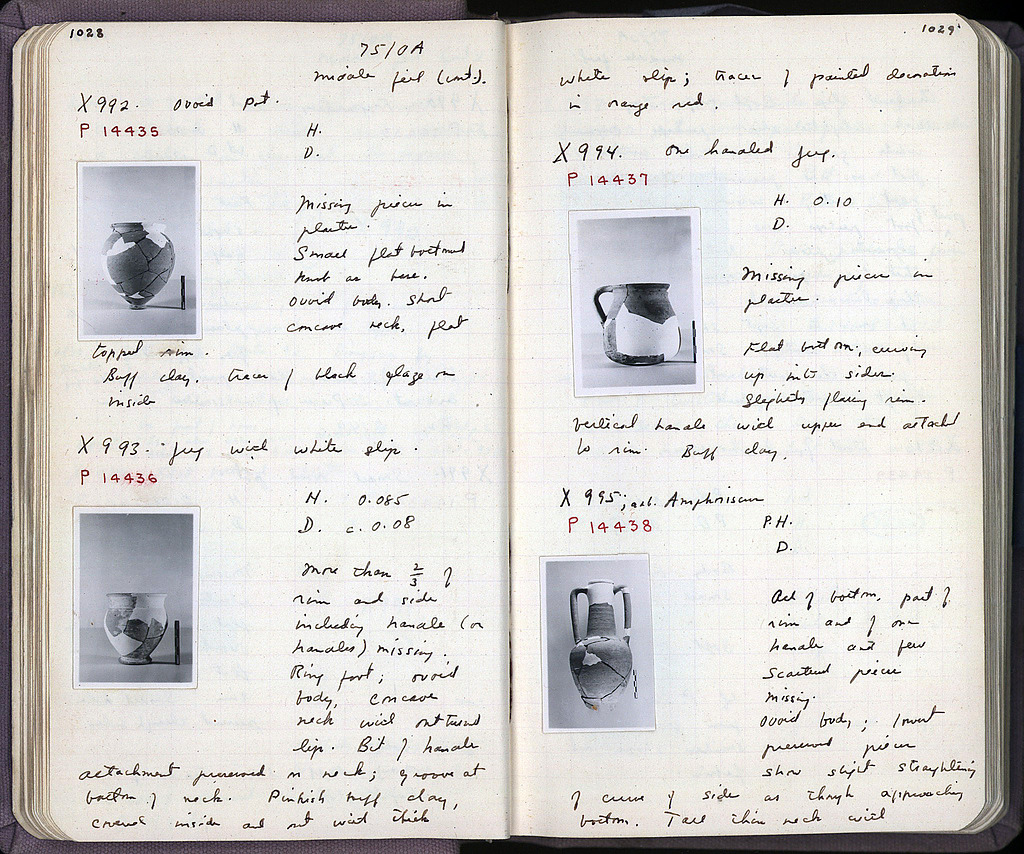 1028
75/OA
middle fill (cont.).
X 992. Ovoid pot.
P 14435
H.
D.
Missing pieces in
plaster.
Small flat bottomed
knob as base.
Ovoid body. Short
concave neck, flat
topped rim.
Buff clay. Traces of black glaze on
inside
X 993. Jug with white slip.
P 14436
H. 0.085
D. c. 0.08
More than 2/3 of
rim and side
including handle (or
handles) missing.
Ring foot; ovoid
body, concave
neck with outturned
lip. Bit of handle
attachment preserved on neck; groove at
bottom of neck. Pinkish buff clay,
covered inside and out with thick
1029
white slip; traces of painted decoration
in orange red.
X 994. One handled jug.
P 14437
H. 0.10
D.
Missing pieces in
plaster.
Flat bottom, curving
up into sides.
Slightly flaring rim.
Vertical handle with upper end attached
to rim. Buff clay.
X 995; Amphoriscus
P 14438
P.H.
D.
All of bottom, part of
rim and of one
handle and few
scattered pieces
missing.
Ovoid body; lowest
preserved pieces
show slight straightening
of curve of side as though approaching
bottom. Tall thin neck with